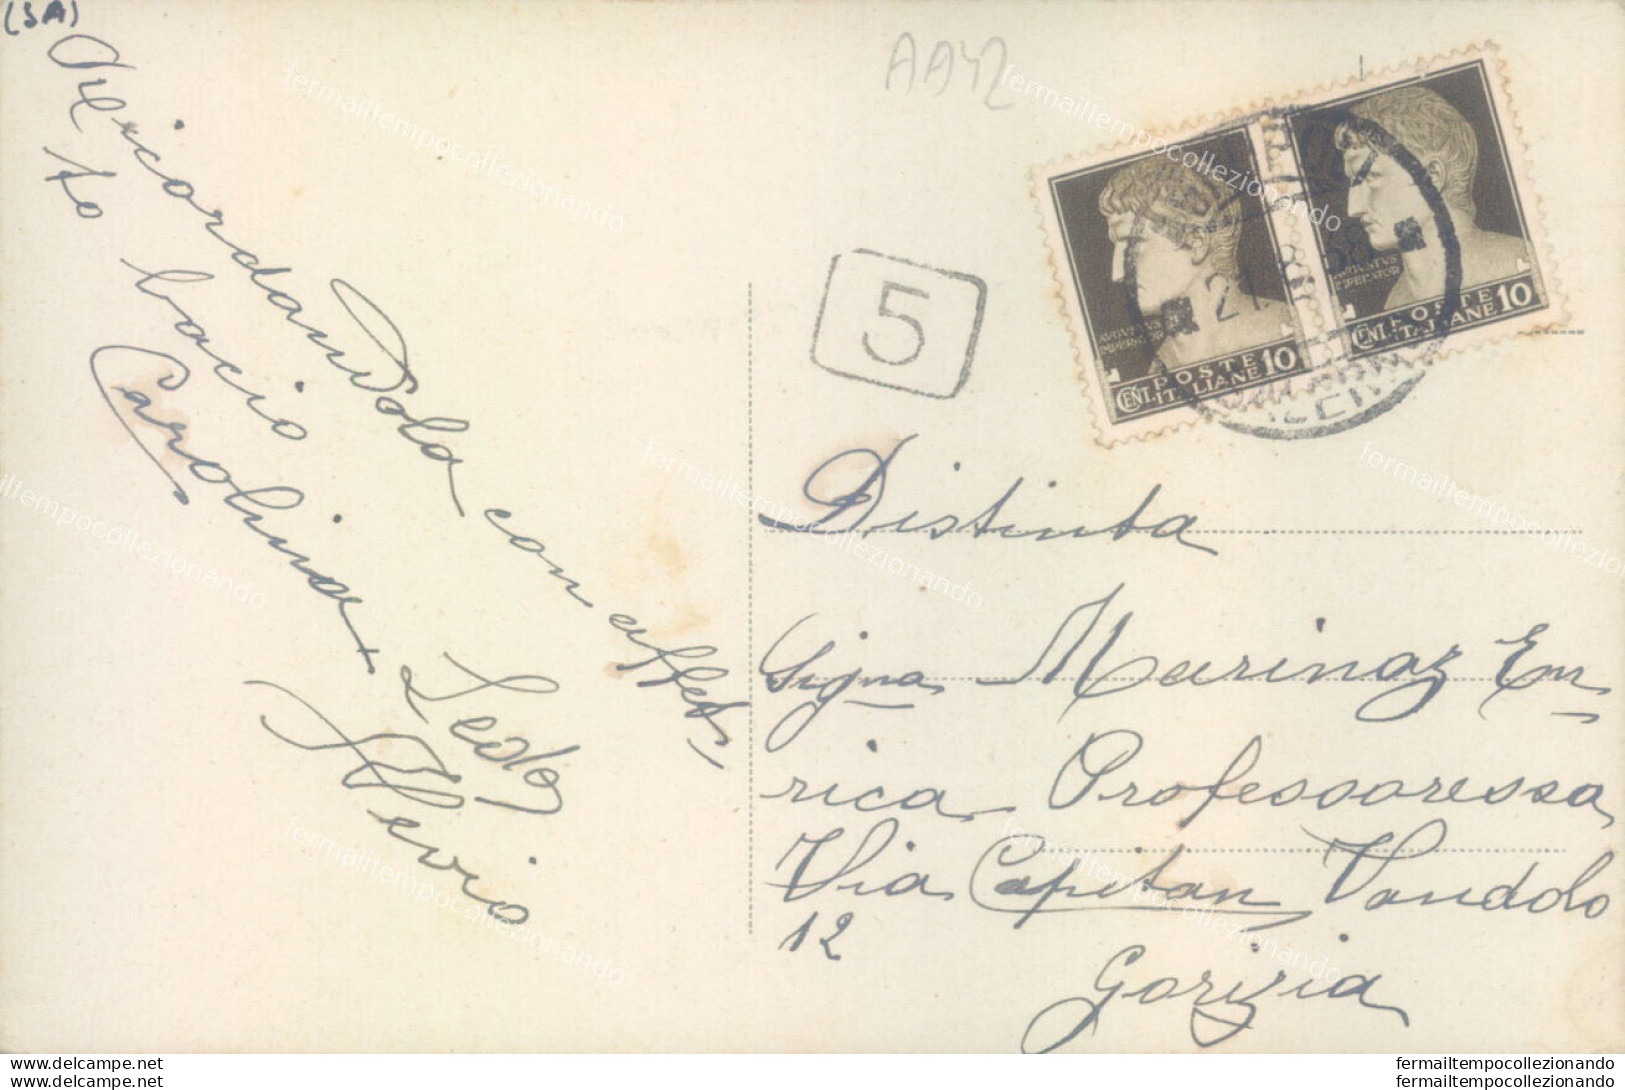 (SA)
AA42
Ricordandola con affet-
to bacio
Carolina
Leda
Silvio
5
AVGVSTVS
IMPERATOR
POSTE
ITALIANE
CENT. 10
AVGVSTVS
IMPERATOR
POSTE
ITALIANE
CENT. 10
21. 8. 38
Distinta
Signa Marinaz En-
rica Professoressa
Via Capitan Vandolo
12
Gorizia
fermailtempocollezionando
fermailtempocollezionando
fermailtempocollezionando
fermailtempocollezionando